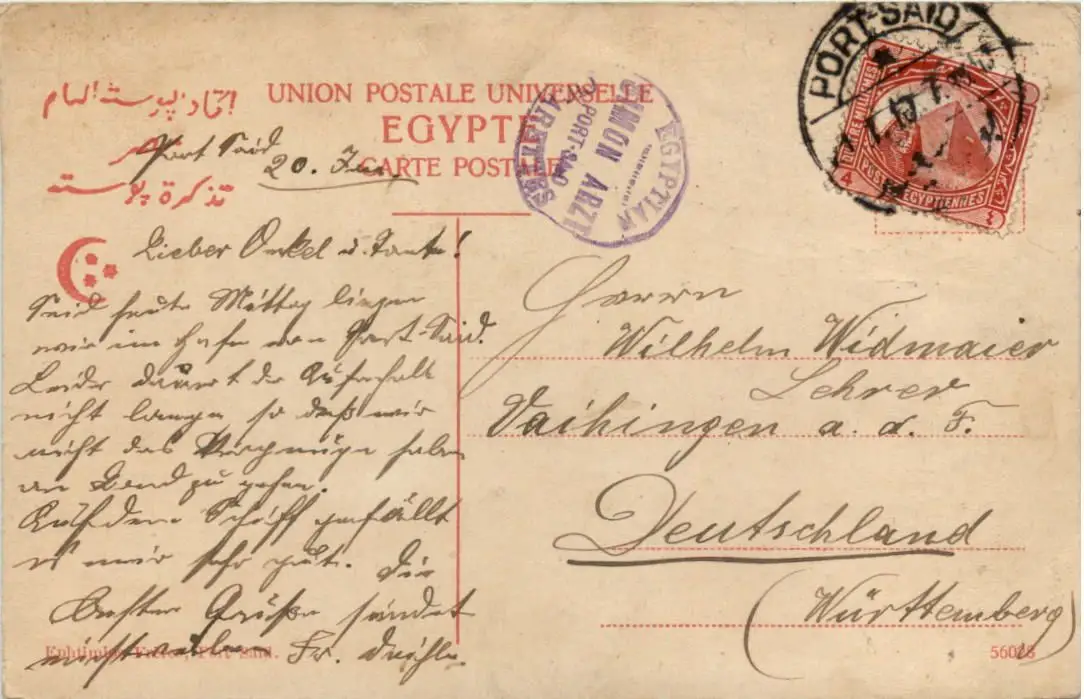 اتحاد پوسته العام
UNION POSTALE UNIVERSELLE
EGYPTE
CARTE POSTALE
تذكرة پوسته
Port Said
20. Jun.
EGYPTIAN
SIMON ARZT
PORT-SAID
PORT-SAID
POSTES EGYPTIENNES
4
٤
Lieber Onkel u. Tante!
Seid heute Mittag liegen
wir im Hafen von Port Said.
Leider dauert der Aufenthalt
nicht lange so daß wir
nicht das Vergnügen haben
an Land zu gehen.
Auf dem Schiff gefällt
es mir sehr gut. Die
besten Grüße sendet
Fr.
Herrn
Wilhelm Widmaier
Lehrer
Vaihingen a. d. F.
Deutschland
(Württemberg)
Port Said.
56028